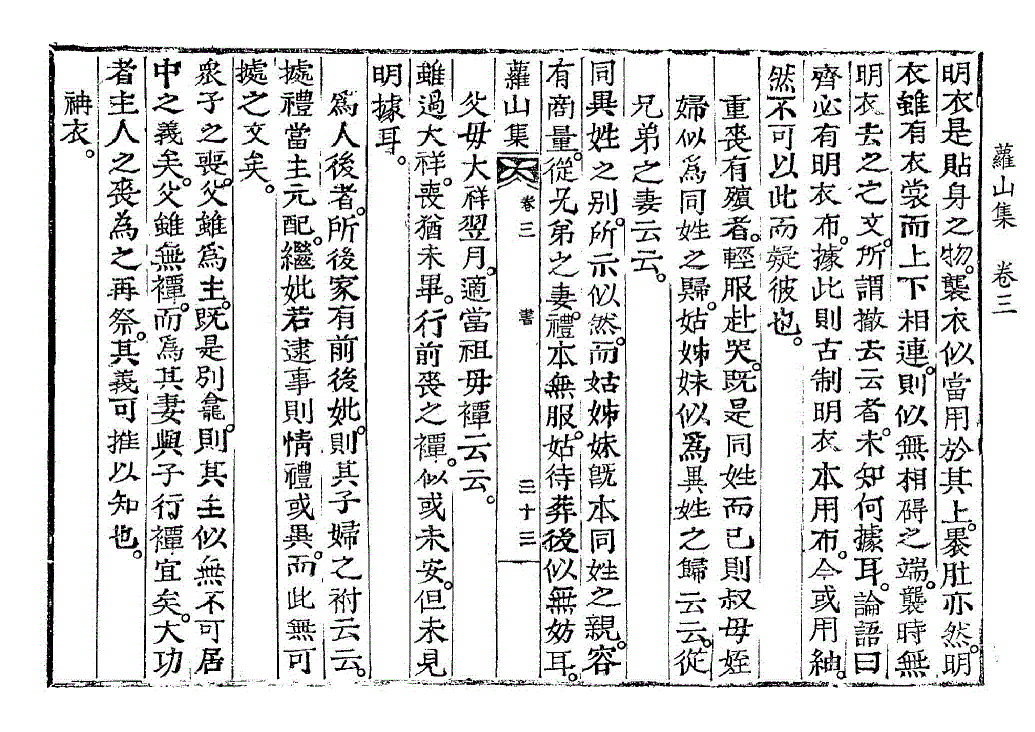 蘿山集 卷三
明衣是貼身之物。襲衣似當用於其上。裹肚亦然。明
衣雖有衣裳而上下相連。則似無相碍之端。襲時無
明衣去之之文。所謂撤去云者。未知何據耳。論語曰
齊必有明衣布。據此則古制明衣本用布。今或用紬。
然不可以此而疑彼也。
重喪有殯者。輕服赴哭。旣是同姓而已則叔母姪
婦似爲同姓之歸。姑姊妹似爲異姓之歸云云。從
兄弟之妻云云。
同異姓之別。所示似然。而姑姊妹旣本同姓之親。容
有商量。從兄弟之妻。禮本無服。姑待葬後似無妨耳。
蘿山集 卷三 書 三十三
父母大祥翌月。適當祖母禫云云。
雖過大祥。喪猶未畢。行前喪之禫。似或未安。但未見
明據耳。
爲人後者。所後家有前後妣。則其子婦之祔云云。
據禮當主元配。繼妣若逮事則情禮或異。而此無可
據之文矣。
衆子之喪。父雖爲主。旣是別龕。則其主似無不可居
中之義矣。父雖無禫。而爲其妻與子行禫宜矣。大功
者主人之喪。為之再祭。其義可推以知也。
神衣。